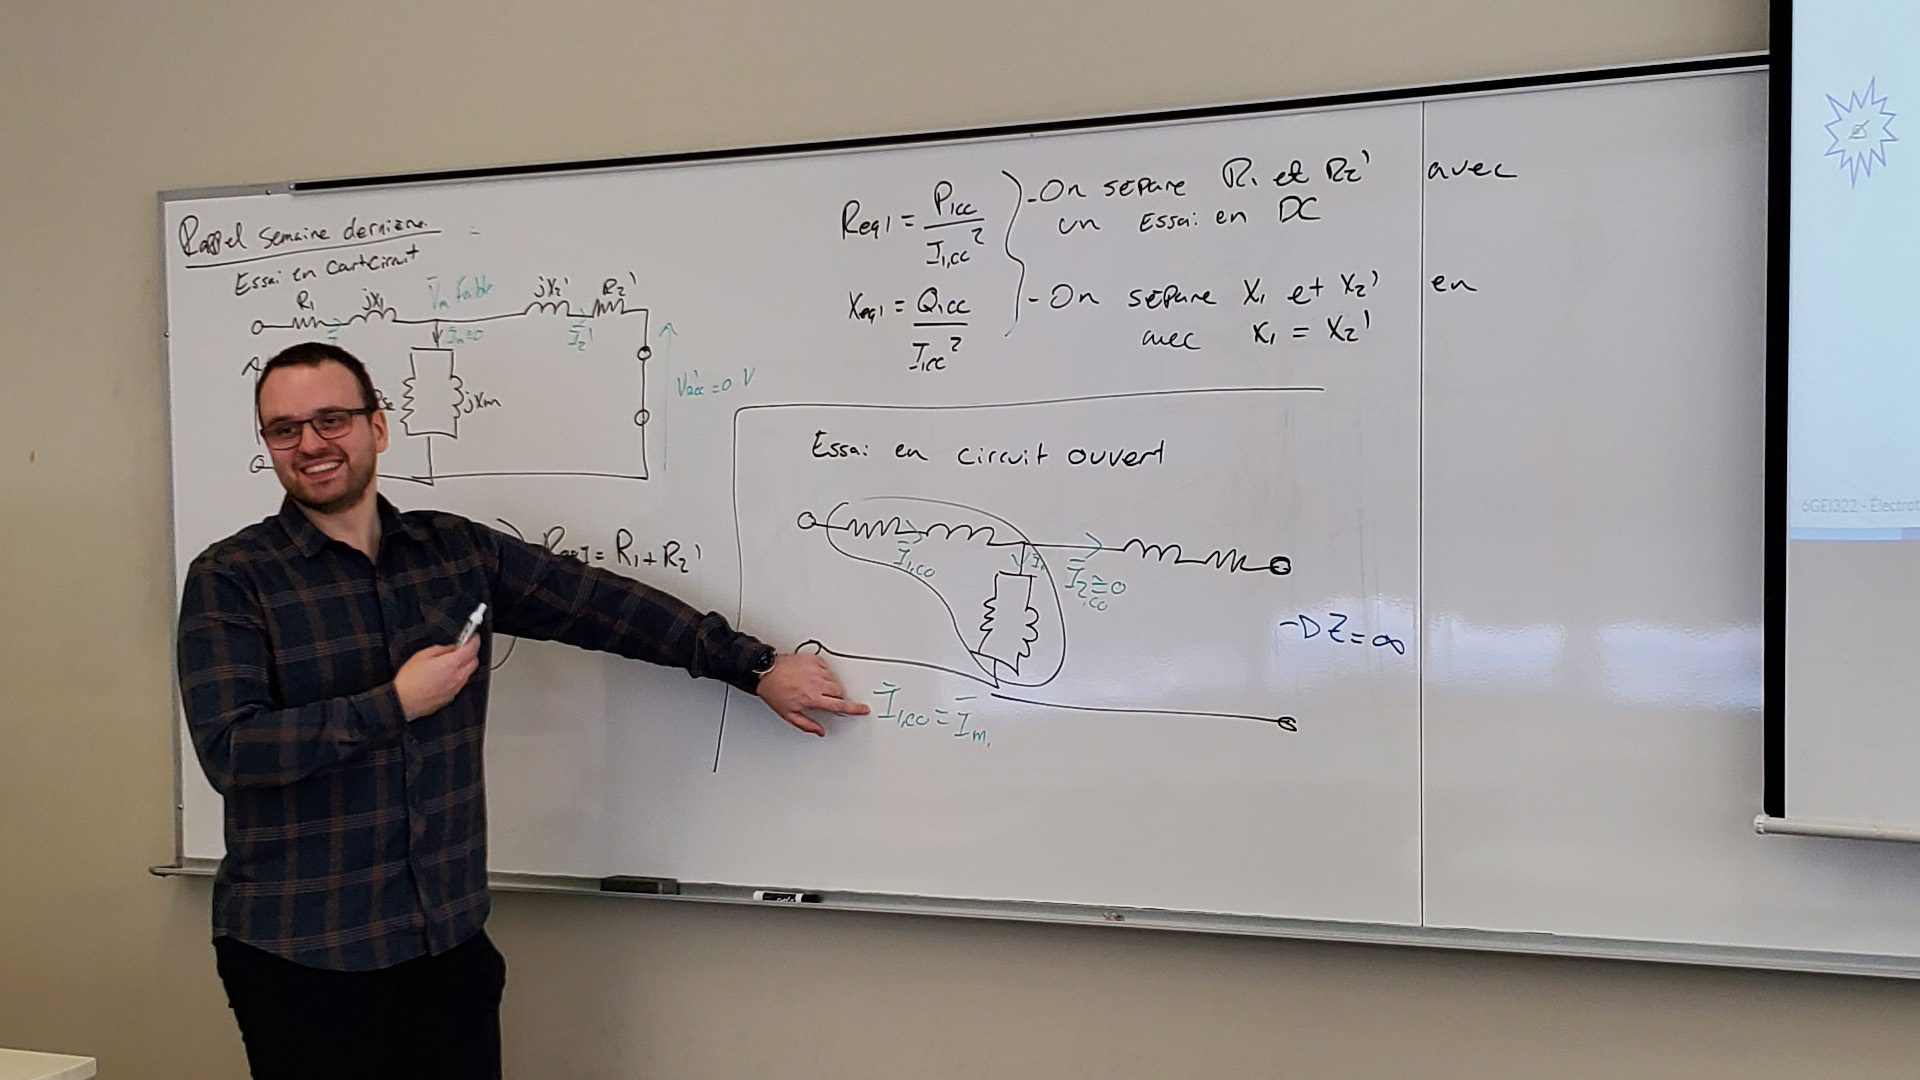 Rappel semaine dernière
Essai en Court-Circuit
R₁ jX₁ V̄m faible jX₂' R₂'
Īm≅0
Ī₂'
jXm
V₂cc' = 0 V
= R₁ + R₂'
Req1 = P1cc / I1,cc²
- On sépare R₁ et R₂' avec
un Essai en DC
Xeq1 = Q1cc / I1cc²
- On sépare X₁ et X₂' en
avec X₁ = X₂'
Essai en circuit ouvert
Ī1,co
Ī₂,co ≅ 0
→ Z = ∞
Ī1,co = Īm
6GEI322 - Électrot